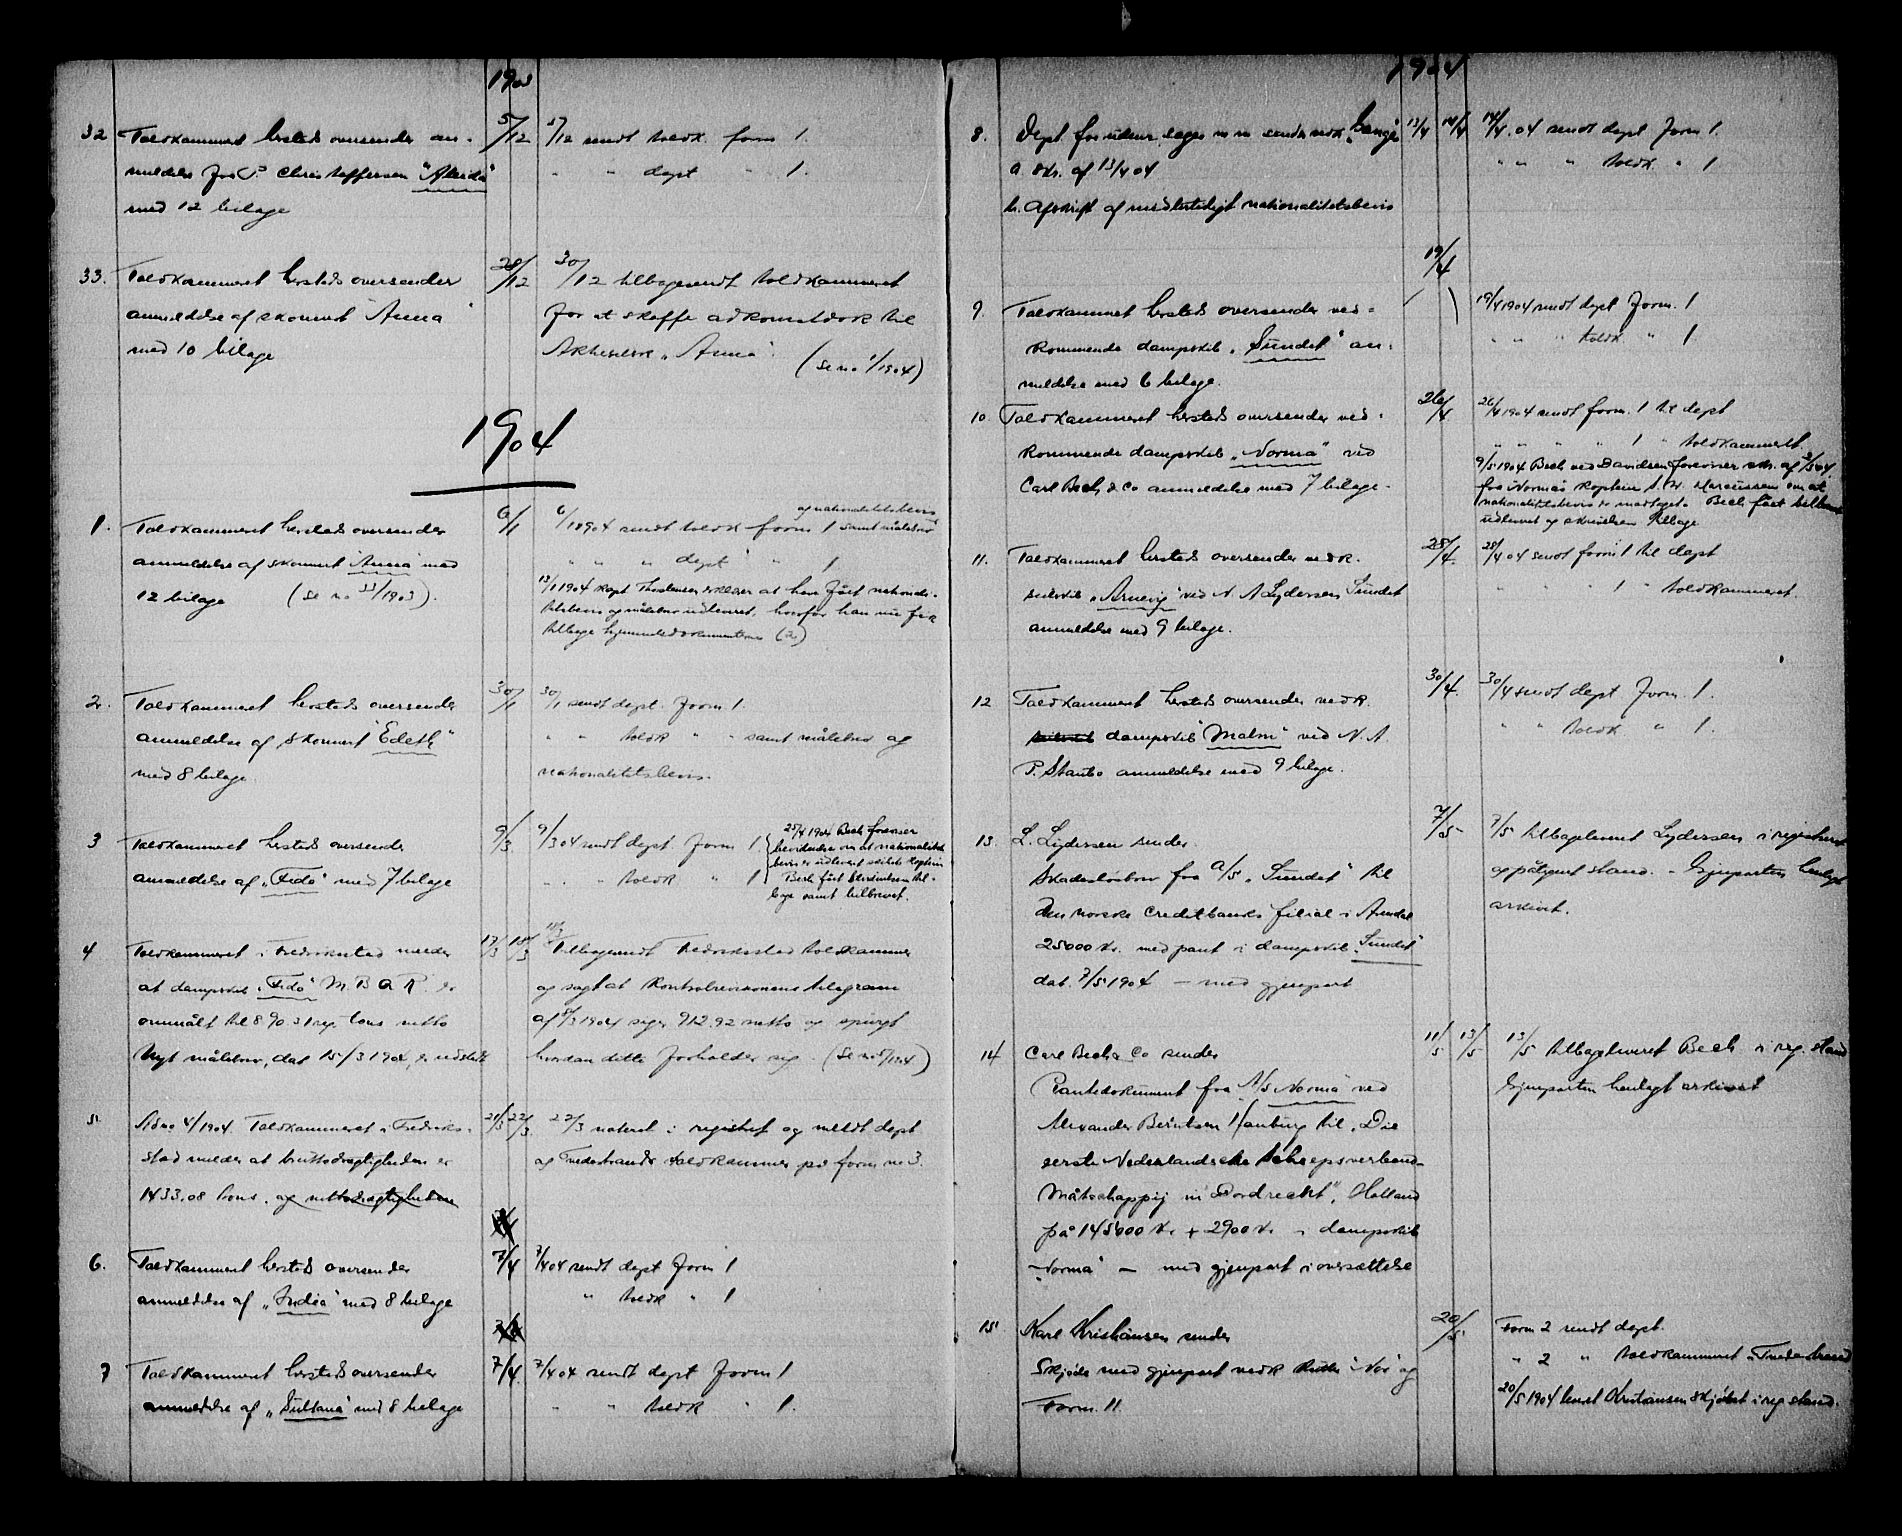 1903
32 Toldkammeret hersteds oversender an-
meldelse fra P. Christoffersen "Alerda"
med 12 bilage
5/12
5/12 sendt toldk. form 1.
" " dept " 1.
33. Toldkammeret hersteds oversender
anmeldelse af skonnert "Anna"
med 10 bilage
28/12
30/12 tilbagesendt toldkammeret
for at skaffe adkomstdok til
Aktieselsk "Anna".
(se no 1/1904)
1904
1. Toldkammeret hersteds oversender
anmeldelse af skonnert "Anna" med
12 bilage (se no 33/1903).
6/1
og nationalitetsbevis
6/1 1904 sendt toldk form 1 samt målebrev
" " " dept " 1
13/1 1904 kapt Thorstensen erklærer at have fået nationali-
tetsbevis og målebrev udleveret, hvorfor han nu fik
tilbage hjemmelsdokumenterne (2)
2. Toldkammeret hersteds oversender
anmeldelse af skonnert "Edeth"
med 8 bilage.
30/1
30/1 sendt dept. form 1.
" " toldk " " samt målebrev og
nationalitetsbevis.
3 Toldkammeret hersteds oversender
anmeldelse af "Fido" med 7 bilage
9/3
9/3 04 sendt dept. form 1.
" " toldk " 1
25/4 1904 Bech foreviser
bevidnelse om at nationalitets
bevis er udleveret skibets kaptein
Bech fået skrivelsen til-
bage samt bilbrevet.
4 Toldkammeret i Fredriksstad melder
at dampskib "Fido" M.B.Q.R. er
ommålt til 890.31 reg tons netto
Nyt målebrev, dat 15/3 1904, er udstedt
17/3 18/3
18/3 Tilbagesendt Fredriksstad toldkammer
og sagt at Kontrolrevisionens telegram
af 8/3 1904 siger 912.92 netto og spurgt
hvordan dette forholder sig. (Se no 5/1904)
5. Ad no 4/1904. Toldkammeret i Fredriks-
stad melder at bruttodrægtigheden er
1433,08 tons. og nettodrægtigheden
21/3 22/3
22/3 noteret i registret og meldt dept
og Tvedestrands toldkammer på form no 3.
6. Toldkammeret hersteds oversender
anmeldelse af "India" med 8 bilage
7/4
7/4 04 sendt dept form 1
" toldk " 1
7 Toldkammeret hersteds oversender
anmeldelse af "Sultana" med 8 bilage
7/4
7/4 04 sendt dept form 1
" " toldk " 1.
1904
8. Dept. for udenr. sager m m sender vedk "Ganger"
a. skr. af 13/4 04
b. Afskrift af midlertidigt nationalitetsbevis
13/4 14/4
14/4. 04 sendt dept form 1.
" " " toldk. " 1
9. Toldkammeret hersteds oversender ved-
kommende dampskib "Sundet" an-
meldelse med 6 bilage.
19/4
19/4 1904 sendt dept form. 1
" " " toldk " 1.
10. Toldkammeret hersteds oversender ved-
kommende dampskib "Norma" ved
Carl Bech & Co anmeldelse med 7 bilage.
26/4
26/4 1904 sendt form. 1 til dept
" " " " 1 " toldkammeret.
9/5 1904 Bech ved Davidsen foreviser skr. af 3/5 04
fra Normas kaptein om at
nationalitetsbevis er modtaget. Bech fået bilbrevet
udleveret og skrivelsen tilbage
11. Toldkammeret hersteds oversender vedk.
seilskib "Arnevig" ved N. A Lydersen Sundet
anmeldelse med 9 bilage.
28/4.
28/4 04 sendt form 1 til dept
" " " 1 " toldkammeret.
12 Toldkammeret hersteds oversender vedk.
dampskib "Malm" ved N. A.
P. Staubo anmeldelse med 9 bilage.
30/4.
30/4 sendt dept form. 1.
" " toldk " 1.
13. L. Lydersen sender
Skadesløsbrev fra A/S "Sundet" til
Den norske creditbanks filial i Arendal
25000 kr. med pant i dampskib "Sundet"
dat. 7/5 1904 — med gjenpart
7/5
7/5 tilbageleveret Lydersen i registreret
og påtegnet stand. - Gjenparten henlagt
arkivet.
14 Carl Bech & Co sender
Pantedokument fra A/S Norma ved
Alexander Berntsen Hamburg til "Die
eerste Nederlandsche Scheepsverband-
Måtschappij in Dordrecht", Holland
på 145000 kr. + 2900 kr. i dampskib
"Norma" — med gjenpart i oversættelse
11/5 13/5
13/5 tilbageleveret Bech i reg. stand
Gjenparten henlagt arkivet
15. Karl Kristiansen sender
Skjøde med gjenpart vedk "Noi" og
Form. 11.
20/5
Form 2 sendt dept.
" 2 " toldkammeret i Tvedestrand
20/5 1904 levert Kristiansen skjødet i reg stand.